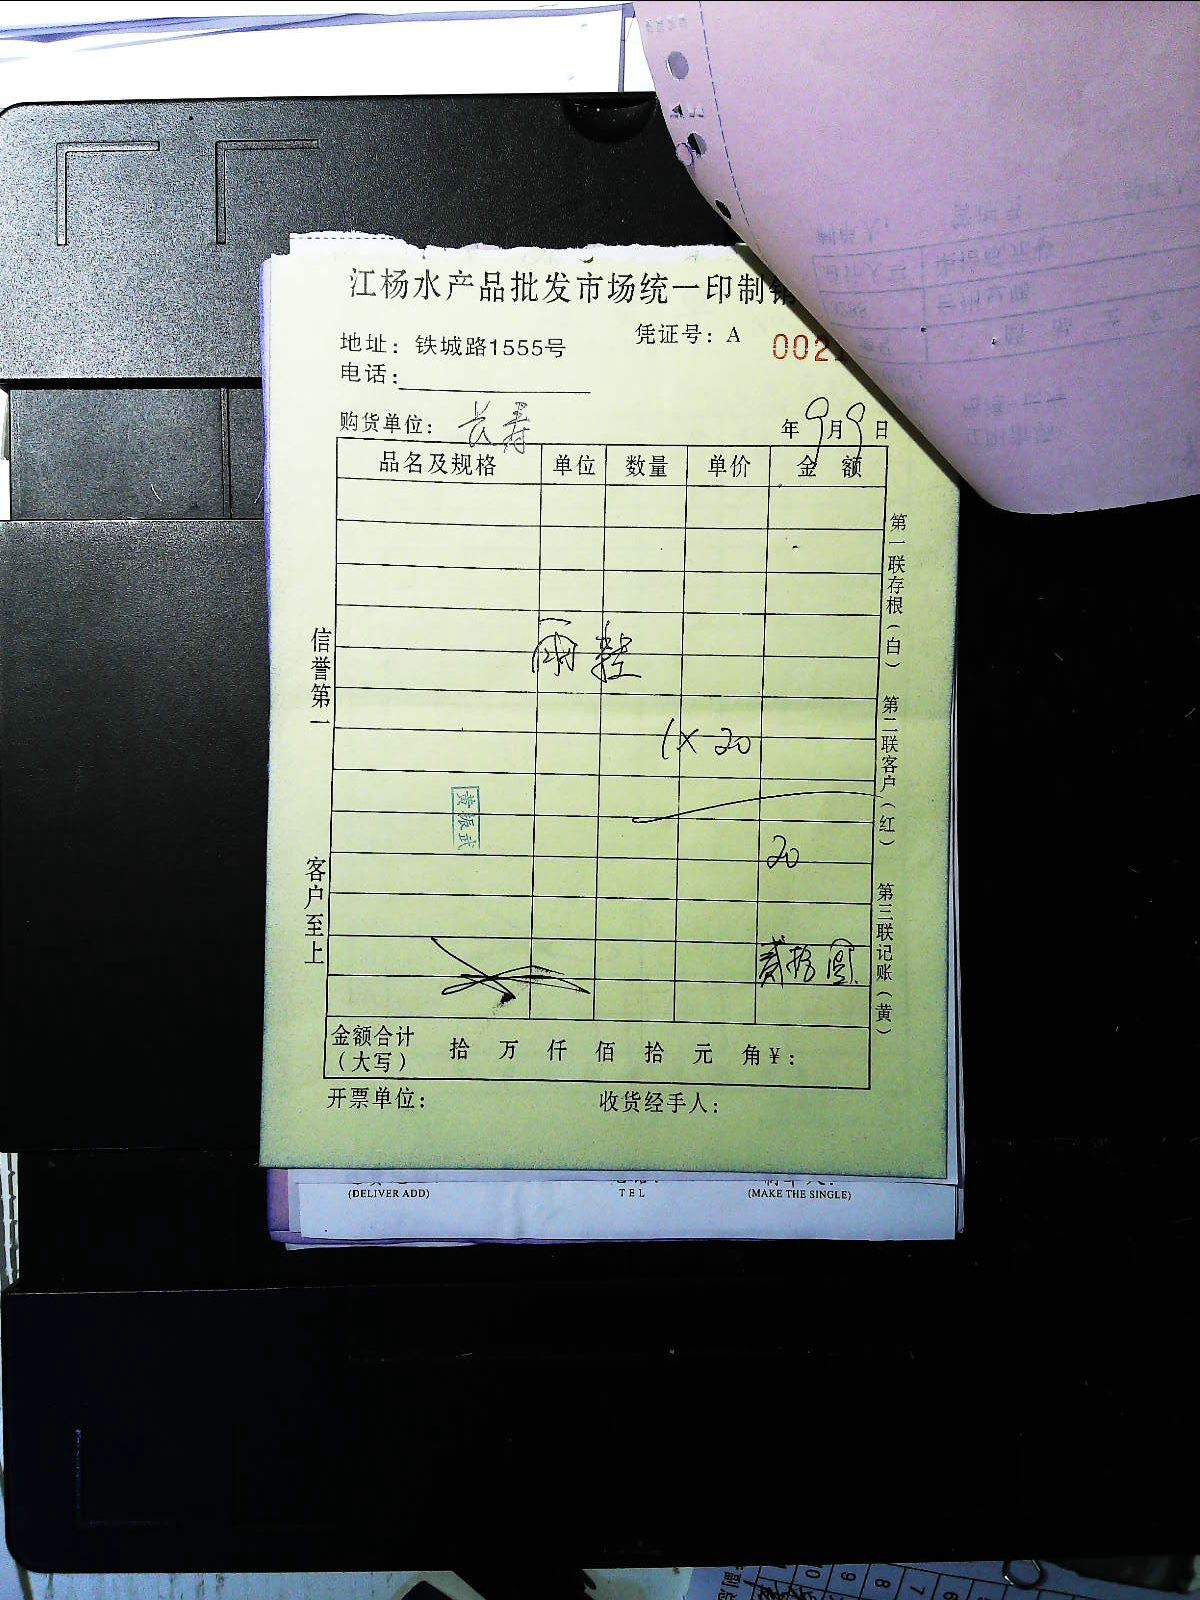 江杨水产品批发市场统一印制销
地址：铁城路1555号
凭证号：A 002
电话：
购货单位：长寿
年9月9日
品名及规格 单位 数量 单价 金额
雨鞋
1×20
20
贰拾圆
黄振武
金额合计（大写） 拾 万 仟 佰 拾 元 角 ¥：
开票单位： 收货经手人：
信誉第一 客户至上
第一联存根（白） 第二联客户（红） 第三联记账（黄）
(DELIVER ADD) TEL (MAKE THE SINGLE)